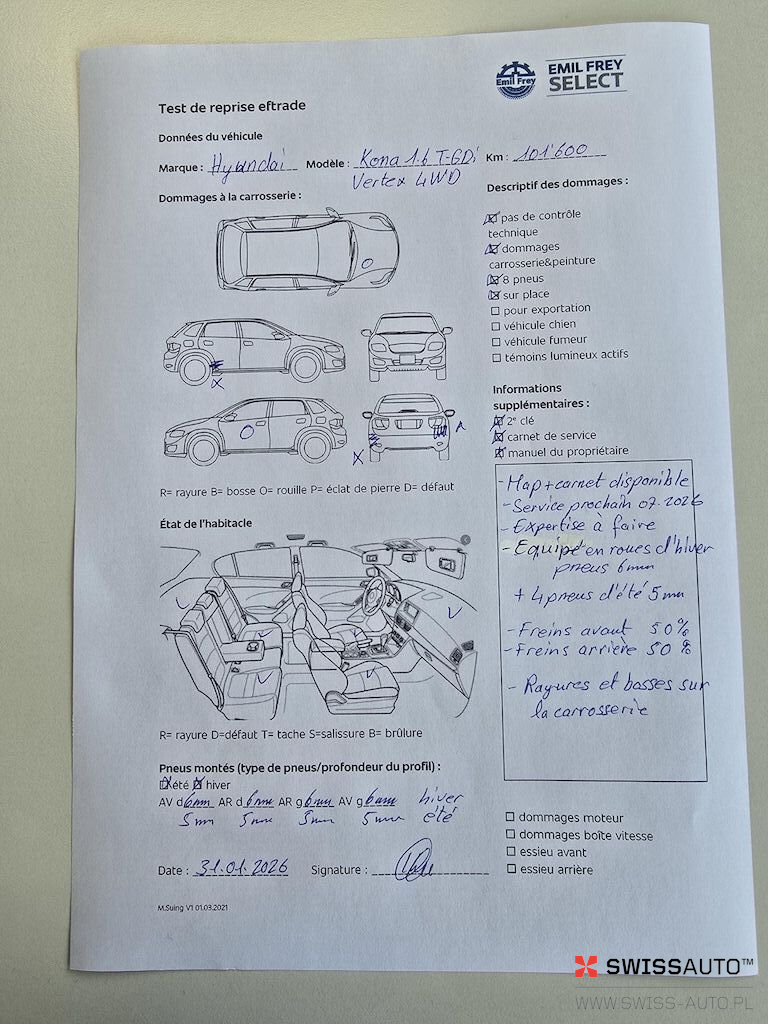 Emil Frey
EMIL FREY
SELECT
Test de reprise eftrade
Données du véhicule
Marque : Hyundai Modèle : Kona 1.6 T-GDi Km : 101'600
Vertex 4WD
Dommages à la carrosserie :
Descriptif des dommages :
pas de contrôle
technique
dommages
carrosserie&peinture
8 pneus
sur place
pour exportation
véhicule chien
véhicule fumeur
témoins lumineux actifs
X
O
X
R
R= rayure B= bosse O= rouille P= éclat de pierre D= défaut
Informations
supplémentaires :
2e clé
carnet de service
manuel du propriétaire
- Map + carnet disponible
- Service prochain 07.2026
- Expertise à faire
- Equipé en roues d'hiver
pneus 6mm
+ 4 pneus d'été 5mm
- Freins avant 50%
- Freins arrière 50%
- Rayures et bosses sur
la carrosserie
État de l'habitacle
R= rayure D=défaut T= tache S=salissure B= brûlure
Pneus montés (type de pneus/profondeur du profil) :
été hiver
AV d 6mm AR d 6mm AR g 6mm AV g 6mm hiver
5mm 5mm 5mm 5mm été
dommages moteur
dommages boîte vitesse
essieu avant
essieu arrière
Date : 31.01.2026 Signature :
M.Suing V1 01.03.2021
SWISSAUTO™
WWW.SWISS-AUTO.PL